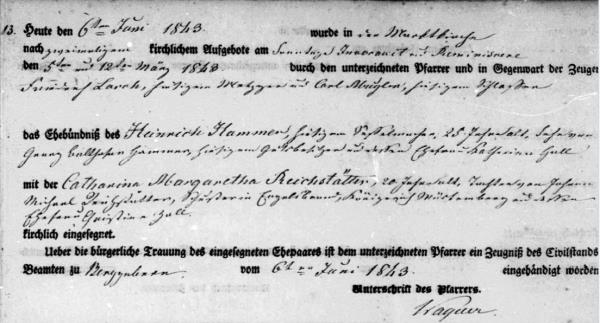 13. Heute den 6ten Juni 1843. wurde in der Marktkirche
nach zweimaligem kirchlichem Aufgebote am Sonntage Invocavit und Reminiscere
den 5ten und 12ten März 1843 durch den unterzeichneten Pfarrer und in Gegenwart der Zeugen
hiesigem Metzger und Carl hiesigem Schlosser
das Ehebündniß des Heinrich Hammer, hiesigem 25 Jahre alt, Sohn von
Georg Balthasar Hammer, hiesigem Gutsbesitzer und dessen Ehefrau Katharina Hall
mit der Catharina Margaretha Reichstätter, 20 Jahre alt, Tochter von Johann
Michael Reichstätter, Königreich Württemberg und dessen
Ehefrau Christina Hall
kirchlich eingesegnet.
Ueber die bürgerliche Trauung des eingesegneten Ehepaares ist dem unterzeichneten Pfarrer ein Zeugniß des Civilstands
Beamten zu Bergzabern vom 6ten Juni 1843. eingehändigt worden
Unterschrift des Pfarrers.
Wagner